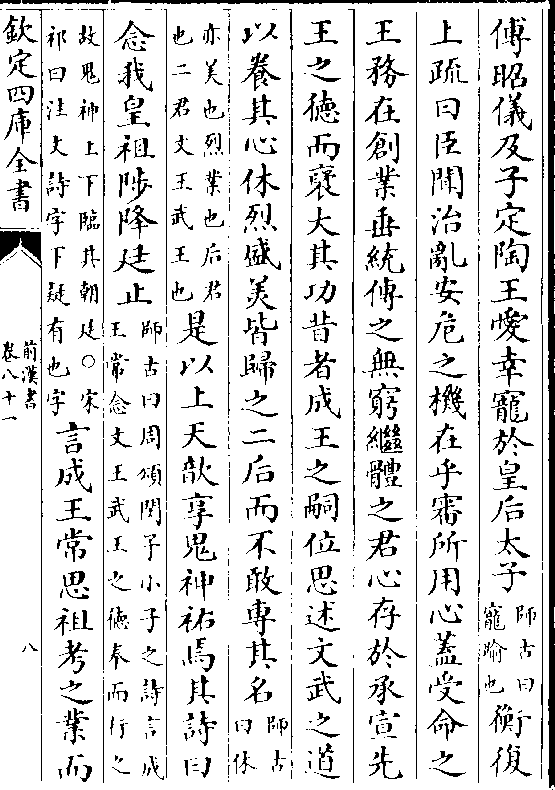 傅昭儀及子定陶王愛幸寵於皇后太子師古曰寵踰也衡復
上疏曰臣聞治亂安危之機在乎審所用心蓋受命之
王務在創業垂統傳之無窮繼體之君心存於承宣先
王之徳而襃大其功昔者成王之嗣位思述文武之道
以養其心休烈盛美皆歸之二后而不敢專其名師古曰休
亦美也烈業也后君也二君文王武王也是以上天歆享鬼神祐焉其詩曰
念我皇祖陟降廷止師古曰周頌閔子小子之詩言成王常念文王武王之徳奉而行之
故鬼神上下臨其朝廷○宋祁曰注文詩字下疑有也字言成王常思祖考之業而
欽定四庫全書
前漢書
卷八十一
八